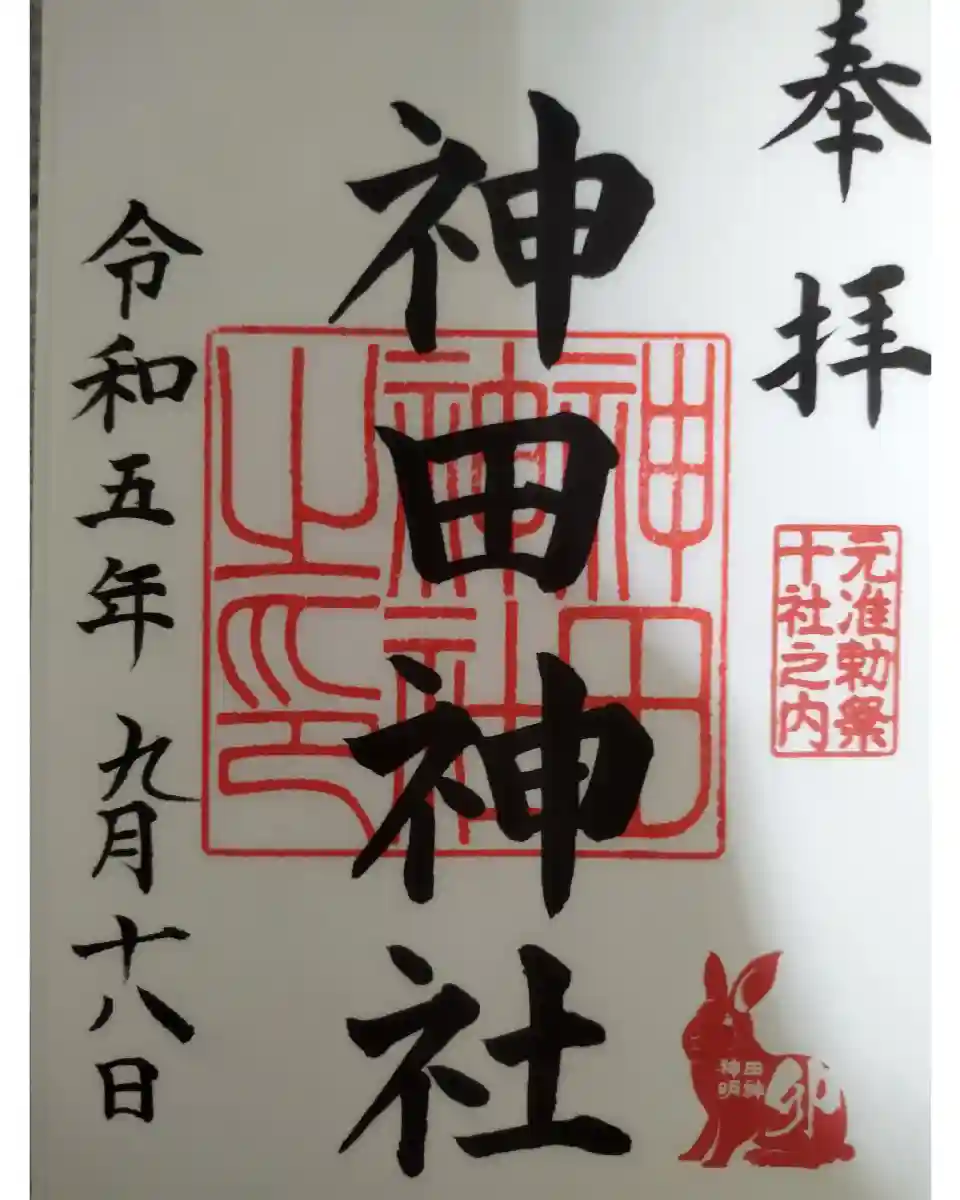 奉拝
元准勅祭
十社之内
神田神社
神田
神社
之印
令和五年九月十八日
神田神明
卯